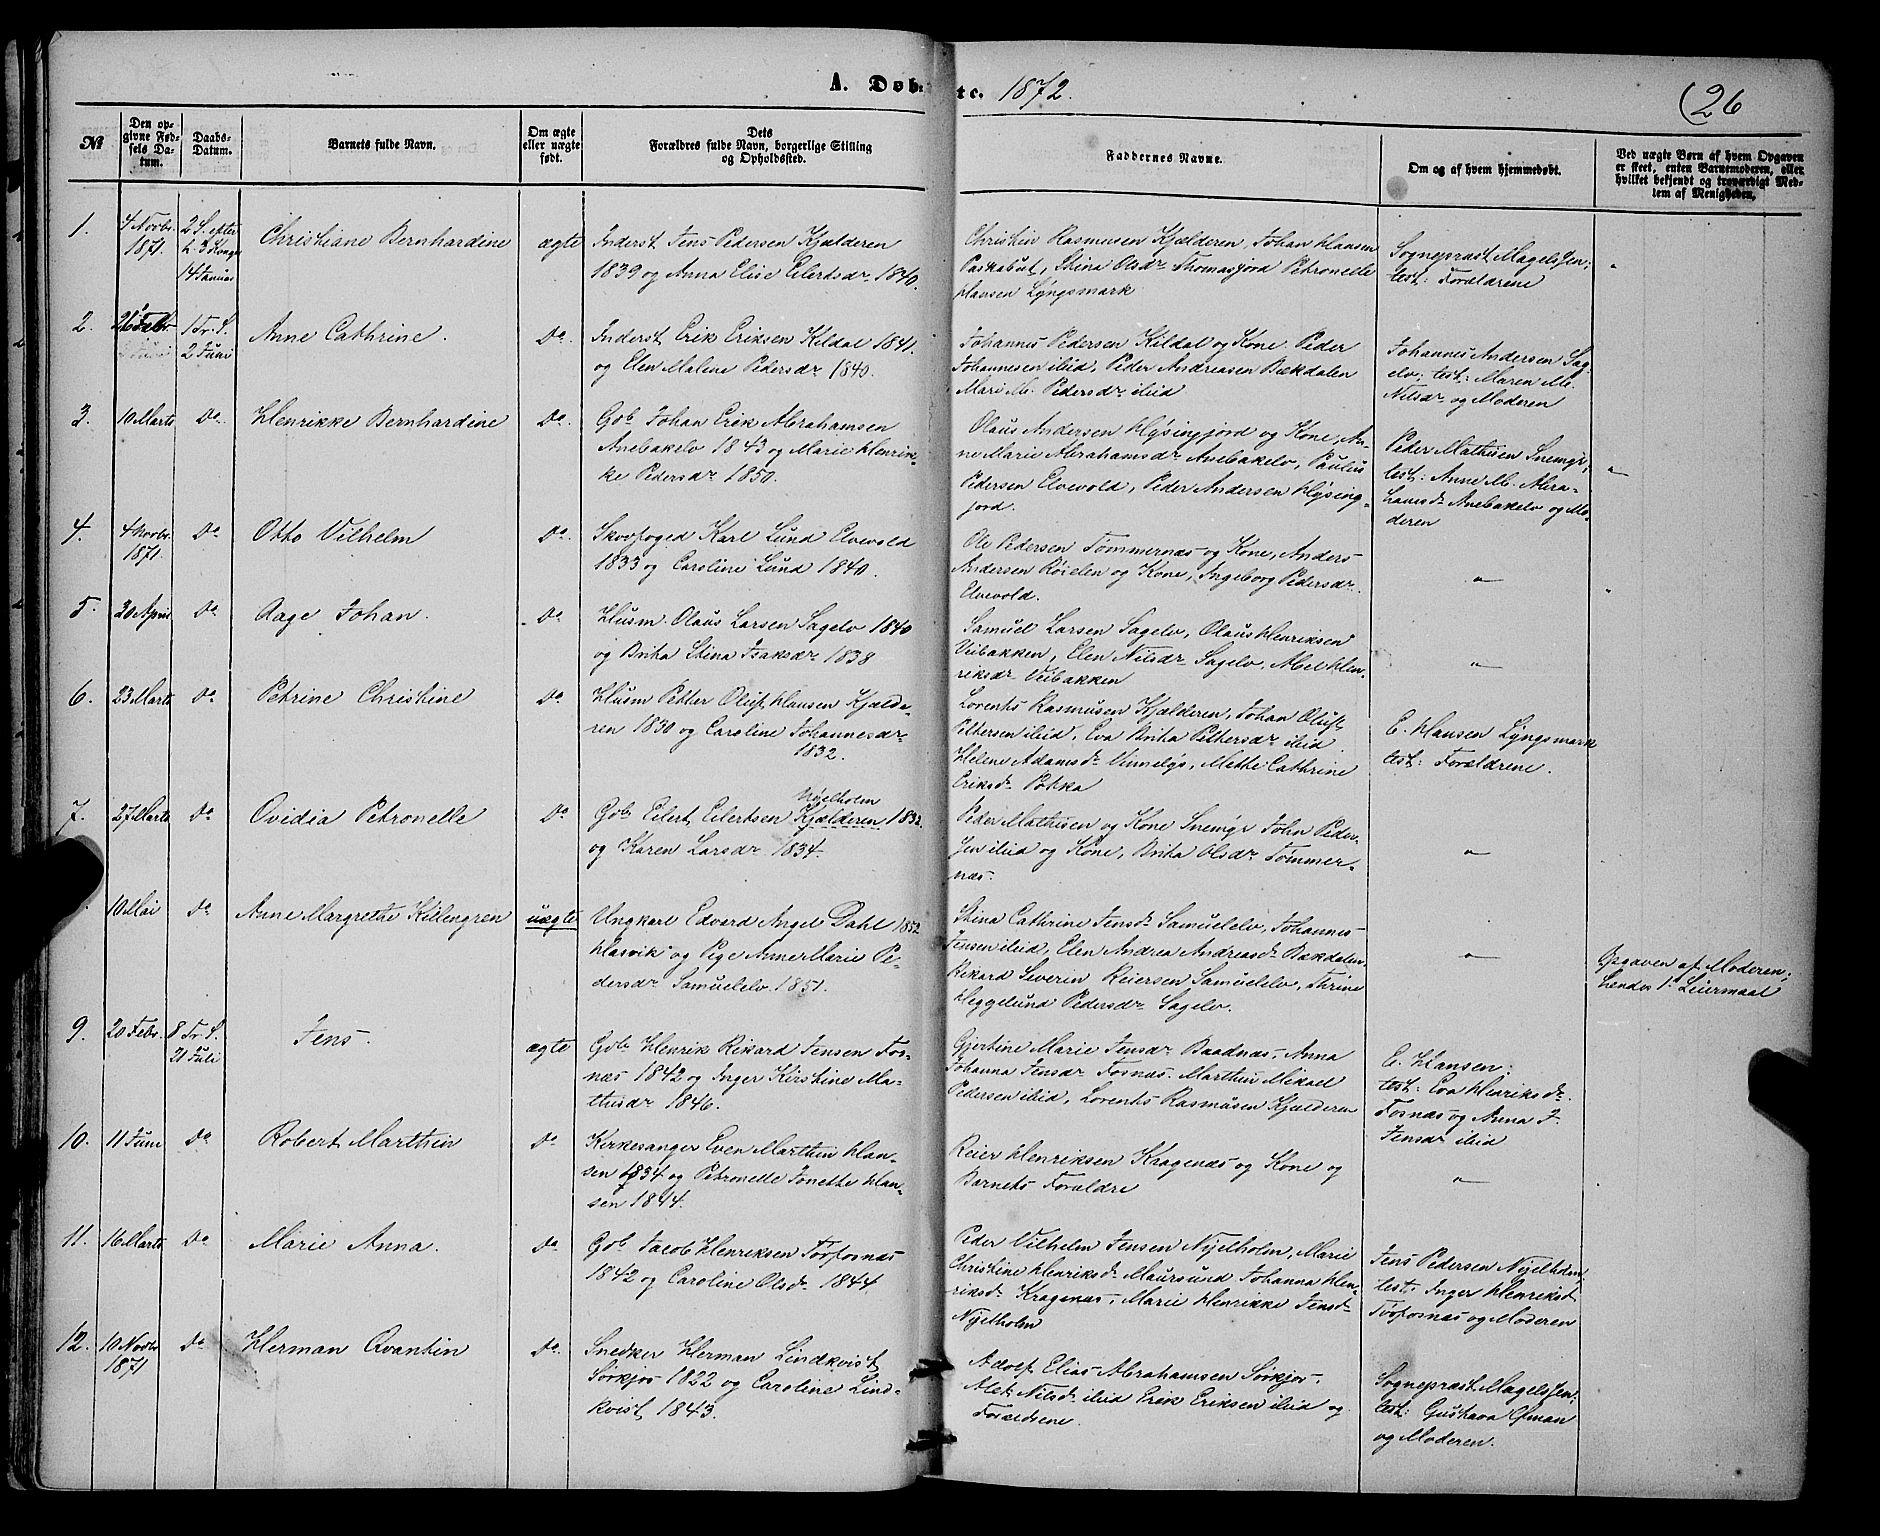 A. Døbte. 1872.
(26
No
Den opgivne Fødsels Datum.
Daabs-Datum.
Barnets fulde Navn.
Om ægte eller uægte født.
Dets Forældres fulde Navn, borgerlige Stilling og Opholdssted.
Faddernes Navne.
Om og af hvem hjemmedøbt.
Ved uægte Børn af hvem Opgaven er skeet, enten Barnemoderen, eller hvilket bekjendt og troværdigt Medlem af Menigheden.
1.
4 Novbr.
1871.
2 S. efter
h. 3 Konger
14 Januar
Christiane Bernhardine
ægte
Inderst Jens Pedersen Kjælderen
1839 og Anna Elise Eilertsdr 1840.
Christin Rasmusen Kjælderen, Johan Hansen
Paskabut, Stina Olsdr Thomasjord Petronelle
Hansen Lyngsmark
Sognepræst Magelssen;
test: Forældrene
"
2.
Febr.
1 Tr. S.
2 Juni
Anne Cathrine.
Do.
Inderst Erik Eriksen Kildal 1841.
og Elen Malene Pedersdr 1840.
Johannes Pedersen Kildal og Kone. Peder
Johannesen ibid, Peder Andreasen Bækdalen
Mari M. Pedersdr ibid
Johannes Andersen Sag-
elv; test: Maren M.
Nilsdr og Moderen
3.
10 Marts
Do.
Henrikke Bernhardine
Do.
Gbr Johan Erik Abrahamsen
Anebakelv 1843 og Marie Henrik-
ke Pedersdr 1850.
Olaus Andersen Hysingjord og Kone, An-
ne Marie Abrahamsdr Anebakelv, Paulus
Pedersen Elvevold, Peder Andersen Hysing-
jord.
Peder Mathisen Snemyr;
test: Anne M. Abra-
hamsdr Anebakelv og Mo-
deren
"
4.
4 Novbr.
1871.
Do
Otto Vilhelm
Do.
Skovfoged Karl Lund Elvevold
1833 og Caroline Lund 1840.
Ole Pedersen Tømmernæs og Kone, Anders
Andersen Røielen og Kone, Ingeborg Pedersdr.
Elvevold.
"
"
5.
30 April
Do.
Aage Johan.
Do
Husm. Olaus Larsen Sagelv 1840
og Brita Stina Isaksdr 1838
Samuel Larsen Sagelv, Olaus Henriksen
Veibakken, Elen Nilsdr Sagelv, Abel Hen-
riksdr Veibakken
"
6.
23 Marts
Do
Petrine Christine
Do
Husm Petter Oluf Hansen Kjælde-
ren 1830 og Caroline Johannesdr
1832.
Lorents Rasmusen Kjælderen, Johan Oluf
Pettersen ibid, Eva Brita Pettersdr ibid.
Helene Adamsdr, Mette Cathrine
Eriksdr Pokka
E. Hansen Lyngsmark
test: Forældrene.
7.
27 Marts
Do
Ovidia Petronelle
Do
Nyelholm
Gbr Eilert Eilertsen Kjælderen 1832.
og Karen Larsdr 1834.
Peder Mathisen og Kone Snemyr John Peder-
sen ibid og Kone, Brita Olsdr Tømmer-
næs.
"
10 Mai
Do
Anne Margrethe Killengren
uægte
Ungkarl Edvard Angel Dahl 1852
Hasvik og Pige Anne Marie Pe-
dersdr Samuelelv 1851.
Stina Cathrine Jensdr Samuelelv, Johannes
Jensen ibid, Elen Andrea Andreasdr Bækdalen,
Rikard Severin Reiersen Samuelelv, Trine
Heggelund Pedersdr Sagelv.
"
"
Opgaven af Moderen;
hendes 1ste Leiermaal
9.
20 Febr.
8 Tr. S.
21 Juli
Jens.
ægte
Gbr Henrik Rikard Jensen Fos-
næs 1842 og Inger Kirstine Ma-
thisdr 1846.
Gjertine Marie Jensdr Baadnæs, Anna
Johanna Jensdr Fosnæs. Marthin Mikael
Pedersen ibid, Lorents Rasmusen Kjælderen
E. Hansen;
test: Eva Henriksdr.
Fosnæs og Anna J.
Jensdr ibid
10.
11 Juni
Do
Robert Marthin
Do
Kirkesanger Even Marthin Han-
sen 1834 og Petronelle Jonette Han-
sen 1844.
Reier Henriksen Kragenæs og Kone og
Barnets Forældre
"
11.
16 Marts
Do
Marie Anna.
Do.
Gbr Jacob Henriksen Torfosnæs
1842 og Caroline Olsdr 1844.
Peder Vilhelm Jensen Nyelholm, Marie
Christine Henriksdr Maursund Johanna Hen-
riksdr Kragenæs, Marie Henrikke Jensdr
Nyelholm
Jens Pedersen Nyelholm,
test. Inger Henriksdr
Torfosnæs og Moderen
12.
10 Novbr
1871
Do
Herman Qvantin
Do.
Snedker Herman Lindkvist
Sørkjos 1822 og Caroline Lind-
kvist 1843.
Adolf Elias Abrahamsen Sørkjos,
Alet Nilsdr ibid Erik Eriksen ibid og
Forældrene.
Sogneprest Magelssen;
test: Gustava Øman
og Moderen.